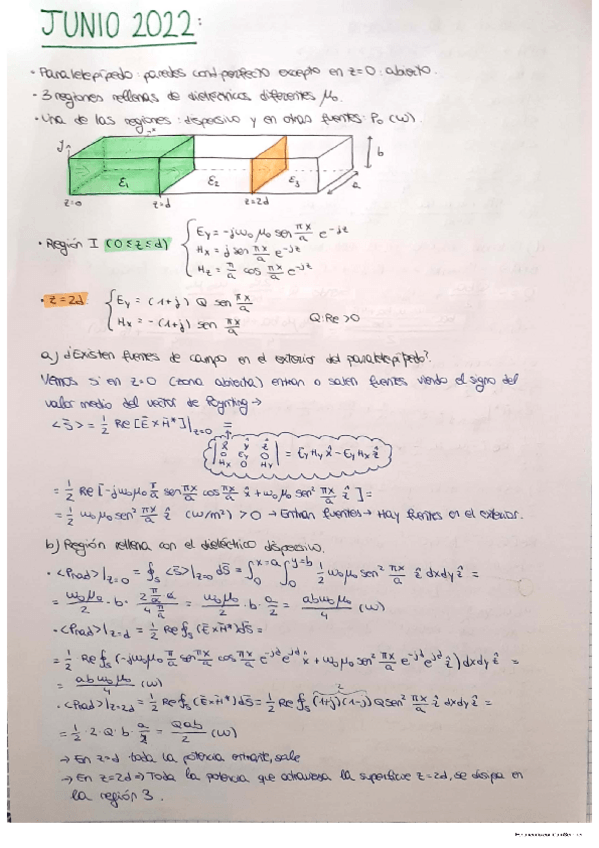 JUNIO 2022:
· Paralelepípedo: paredes cond. perfecto excepto en z=0: abierto.
· 3 regiones rellenas de dieléctricos diferentes μ₀.
· Una de las regiones: dispersivo y en otras fuentes: P₀ (W).
ε₁ ε₂ ε₃ b a
z=0 z=d z=2d
· Región I (0≤z≤d) { Ey = -jω₀μ₀ sen πx/a e^-jz
Hx = j sen πx/a e^-jz
Hz = π/a cos πx/a e^-jz
· z=2d { Ey = (1+j) Q sen πx/a
Hx = -(1+j) sen πx/a Q: Re >0
a) ¿Existen fuentes de campo en el exterior del paralelepípedo?
Vemos si en z=0 (zona abierta) entran o salen fuentes viendo el signo del
valor medio del vector de Poynting →
<S̄> = 1/2 Re [Ē×H̄*]|z=0 =
|x̂ ŷ ẑ| |0 Ey 0| |Hx 0 Hy| = Ey Hy x̂ - Ey Hx ẑ
= 1/2 Re [-jω₀μ₀ π/a sen πx/a cos πx/a x̂ + ω₀μ₀ sen² πx/a ẑ] =
= 1/2 ω₀μ₀ sen² πx/a ẑ (W/m²) > 0 → Entran fuentes → Hay fuentes en el exterior.
b) Región rellena con el dieléctrico dispersivo.
· <Prad>|z=0 = ∮s <S̄>|z=0 dS̄ = ∫₀^x=a ∫₀^y=b 1/2 ω₀μ₀ sen² πx/a ẑ dxdy ẑ =
= ω₀μ₀/2 · b · = ω₀μ₀/2 · b · a/2 = abω₀μ₀/4 (W)
· <Prad>|z=d = 1/2 Re ∮s (Ē×H̄*) dS̄ =
= 1/2 Re ∮s (-jω₀μ₀ π/a sen πx/a cos πx/a e^-jd e^jd x̂ + ω₀μ₀ sen² πx/a e^-jd e^jd ẑ) dxdy ẑ =
= abω₀μ₀/4 (W)
· <Prad>|z=2d = 1/2 Re ∮s (Ē×H̄*) dS̄ = 1/2 Re ∮s (1+j)(1-j) Q sen² πx/a ẑ dxdy ẑ =
= 1/2 · 2 · Q · b · a/2 = Qab/2 (W)
→ En z=d toda la potencia entrante, sale
→ En z=2d ⇒ Toda la potencia que atraviesa la superficie z=2d, se disipa en
la región 3.